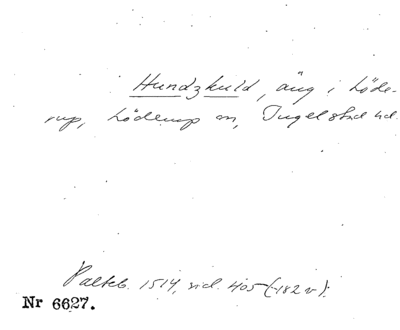 Hundzkuld, äng i Löde-
rup, Löderup sn, Ingelstad hd.
Palteb. 1514, sid. 405 (-182 v).
Nr 6627.